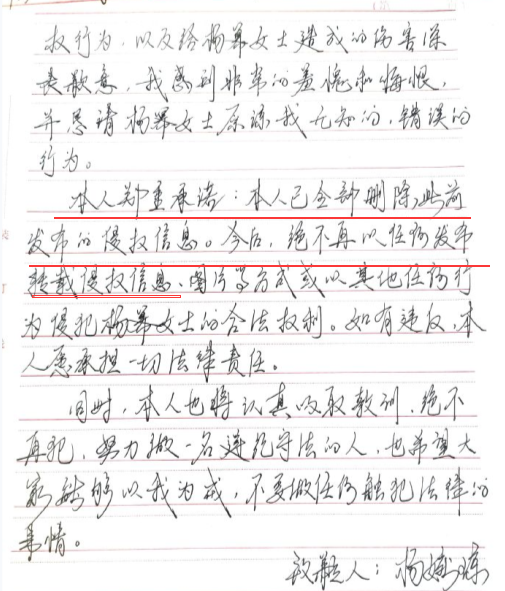 权行为,以及给杨幂女士造成的伤害深
表歉意,我感到非常的羞愧和悔恨,
并恳请杨幂女士原谅我无知的,错误的
行为。
本人郑重承诺:本人已全部删除此前
发布的侵权信息。今后,绝不再以任何发布
转载侵权信息、图片等方式或以其他任何行
为侵犯杨幂女士的合法权利。如有违反,本
人愿承担一切法律责任。
同时,本人也将认真吸取教训,绝不
再犯,努力做一名遵纪守法的人,也希望大
家能够以我为戒,不要做任何触犯法律的
事情。
致歉人:杨